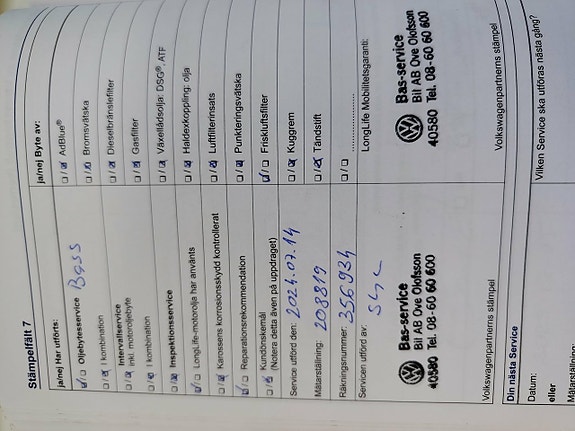 Stämpelfält 7
ja/nej Har utförts:
Oljebytesservice Bass
I kombination
Intervallservice
inkl. motoroljebyte
I kombination
Inspektionsservice
LongLife-motorolja har använts
Karossens korrosionsskydd kontrollerat
Reparationsrekommendation
Kundönskemål
(Notera detta även på uppdraget)
Service utförd den: 2024.07.14
Mätarställning: 208819
Räkningsnummer: 356934
Servicen utförd av:
Bas-service
Bil AB Ove Olofsson
40580 Tel. 08-60 60 600
Volkswagenpartnerns stämpel
ja/nej Byte av:
AdBlue®
Bromsvätska
Dieselbränslefilter
Gasfilter
Växellådsolja: DSG®, ATF
Haldexkoppling: olja
Luftfilterinsats
Punkteringsvätska
Friskluftsfilter
Kuggrem
Tändstift
LongLife Mobilitetsgaranti:
Bas-service
Bil AB Ove Olofsson
40580 Tel. 08-60 60 600
Volkswagenpartnerns stämpel
Din nästa Service
Datum:
eller
Mätarställning
Vilken Service ska utföras nästa gång?